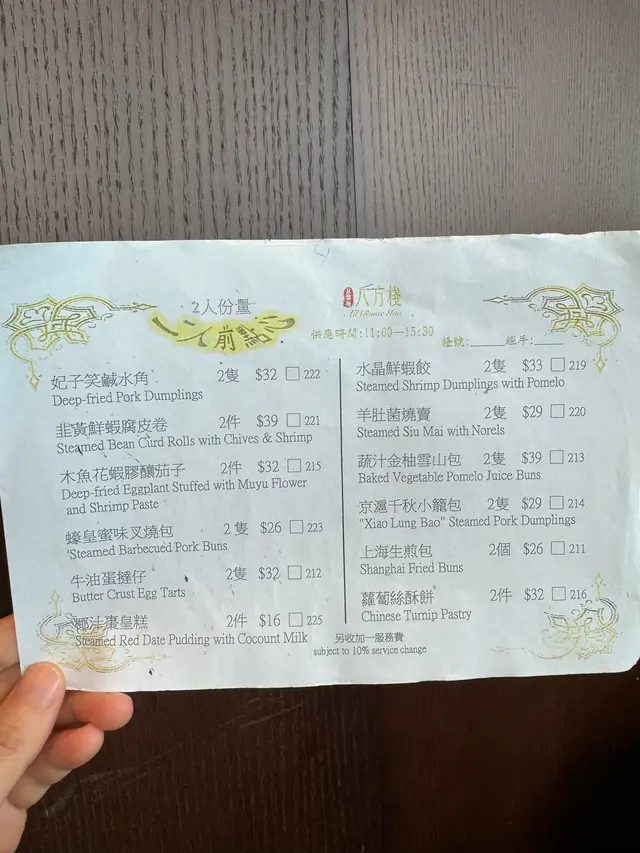 2人份量
二人前點心
八方棧
All Route Inn
供應時間:11:00—15:30
檯號:_____ 經手:_____
妃子笑鹹水角 2隻 $32 □ 222
Deep-fried Pork Dumplings
韭黃鮮蝦腐皮卷 2件 $39 □ 221
Steamed Bean Curd Rolls with Chives & Shrimp
木魚花蝦膠釀茄子 2件 $32 □ 215
Deep-fried Eggplant Stuffed with Muyu Flower
and Shrimp Paste
蠔皇蜜味叉燒包 2隻 $26 □ 223
'Steamed Barbecued Pork Buns
牛油蛋撻仔 2隻 $32 □ 212
Butter Crust Egg Tarts
椰汁棗皇糕 2件 $16 □ 225
Steamed Red Date Pudding with Cocount Milk
水晶鮮蝦餃 2隻 $33 □ 219
Steamed Shrimp Dumplings with Pomelo
羊肚菌燒賣 2隻 $29 □ 220
Steamed Siu Mai with Norels
蔬汁金柚雪山包 2隻 $39 □ 213
Baked Vegetable Pomelo Juice Buns
京滬千秋小籠包 2隻 $29 □ 214
"Xiao Lung Bao" Steamed Pork Dumplings
上海生煎包 2個 $26 □ 211
Shanghai Fried Buns
蘿蔔絲酥餅 2件 $32 □ 216
Chinese Turnip Pastry
另收加一服務費
subject to 10% service change